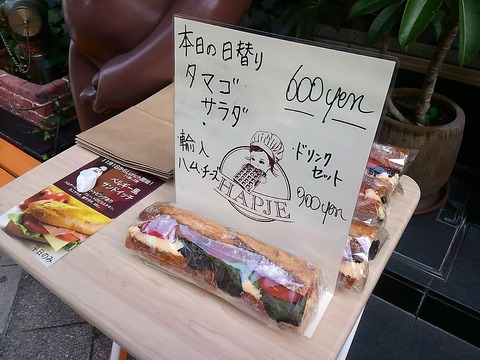 本日の日替り
タマゴ
サラダ
・
輸入
ハムチーズ
600yen
ドリンク
セット
900yen
HAPJE
ベルギー風
サンドイッチ
平日のみ